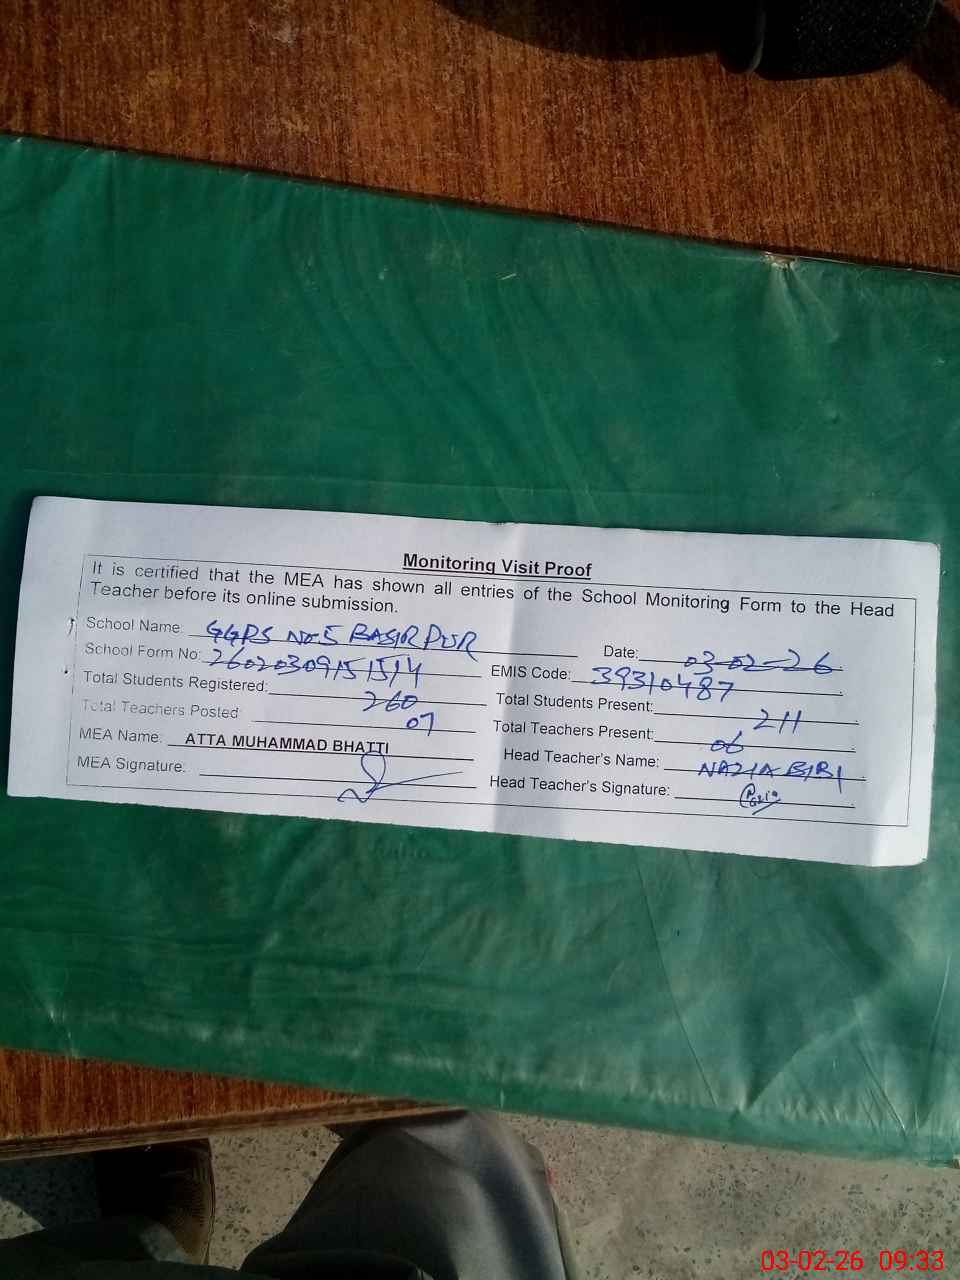 Monitoring Visit Proof
It is certified that the MEA has shown all entries of the School Monitoring Form to the Head
Teacher before its online submission.
School Name: GGPS No-5 BASIR PUR
Date: 03-02-26
School Form No: 26020309151514
EMIS Code: 39310487
Total Students Registered: 260
Total Students Present: 211
Total Teachers Posted: 07
Total Teachers Present: 06
MEA Name: ATTA MUHAMMAD BHATTI
Head Teacher's Name: NAZIA BIBI
MEA Signature:
Head Teacher's Signature:
03-02-26 09:33